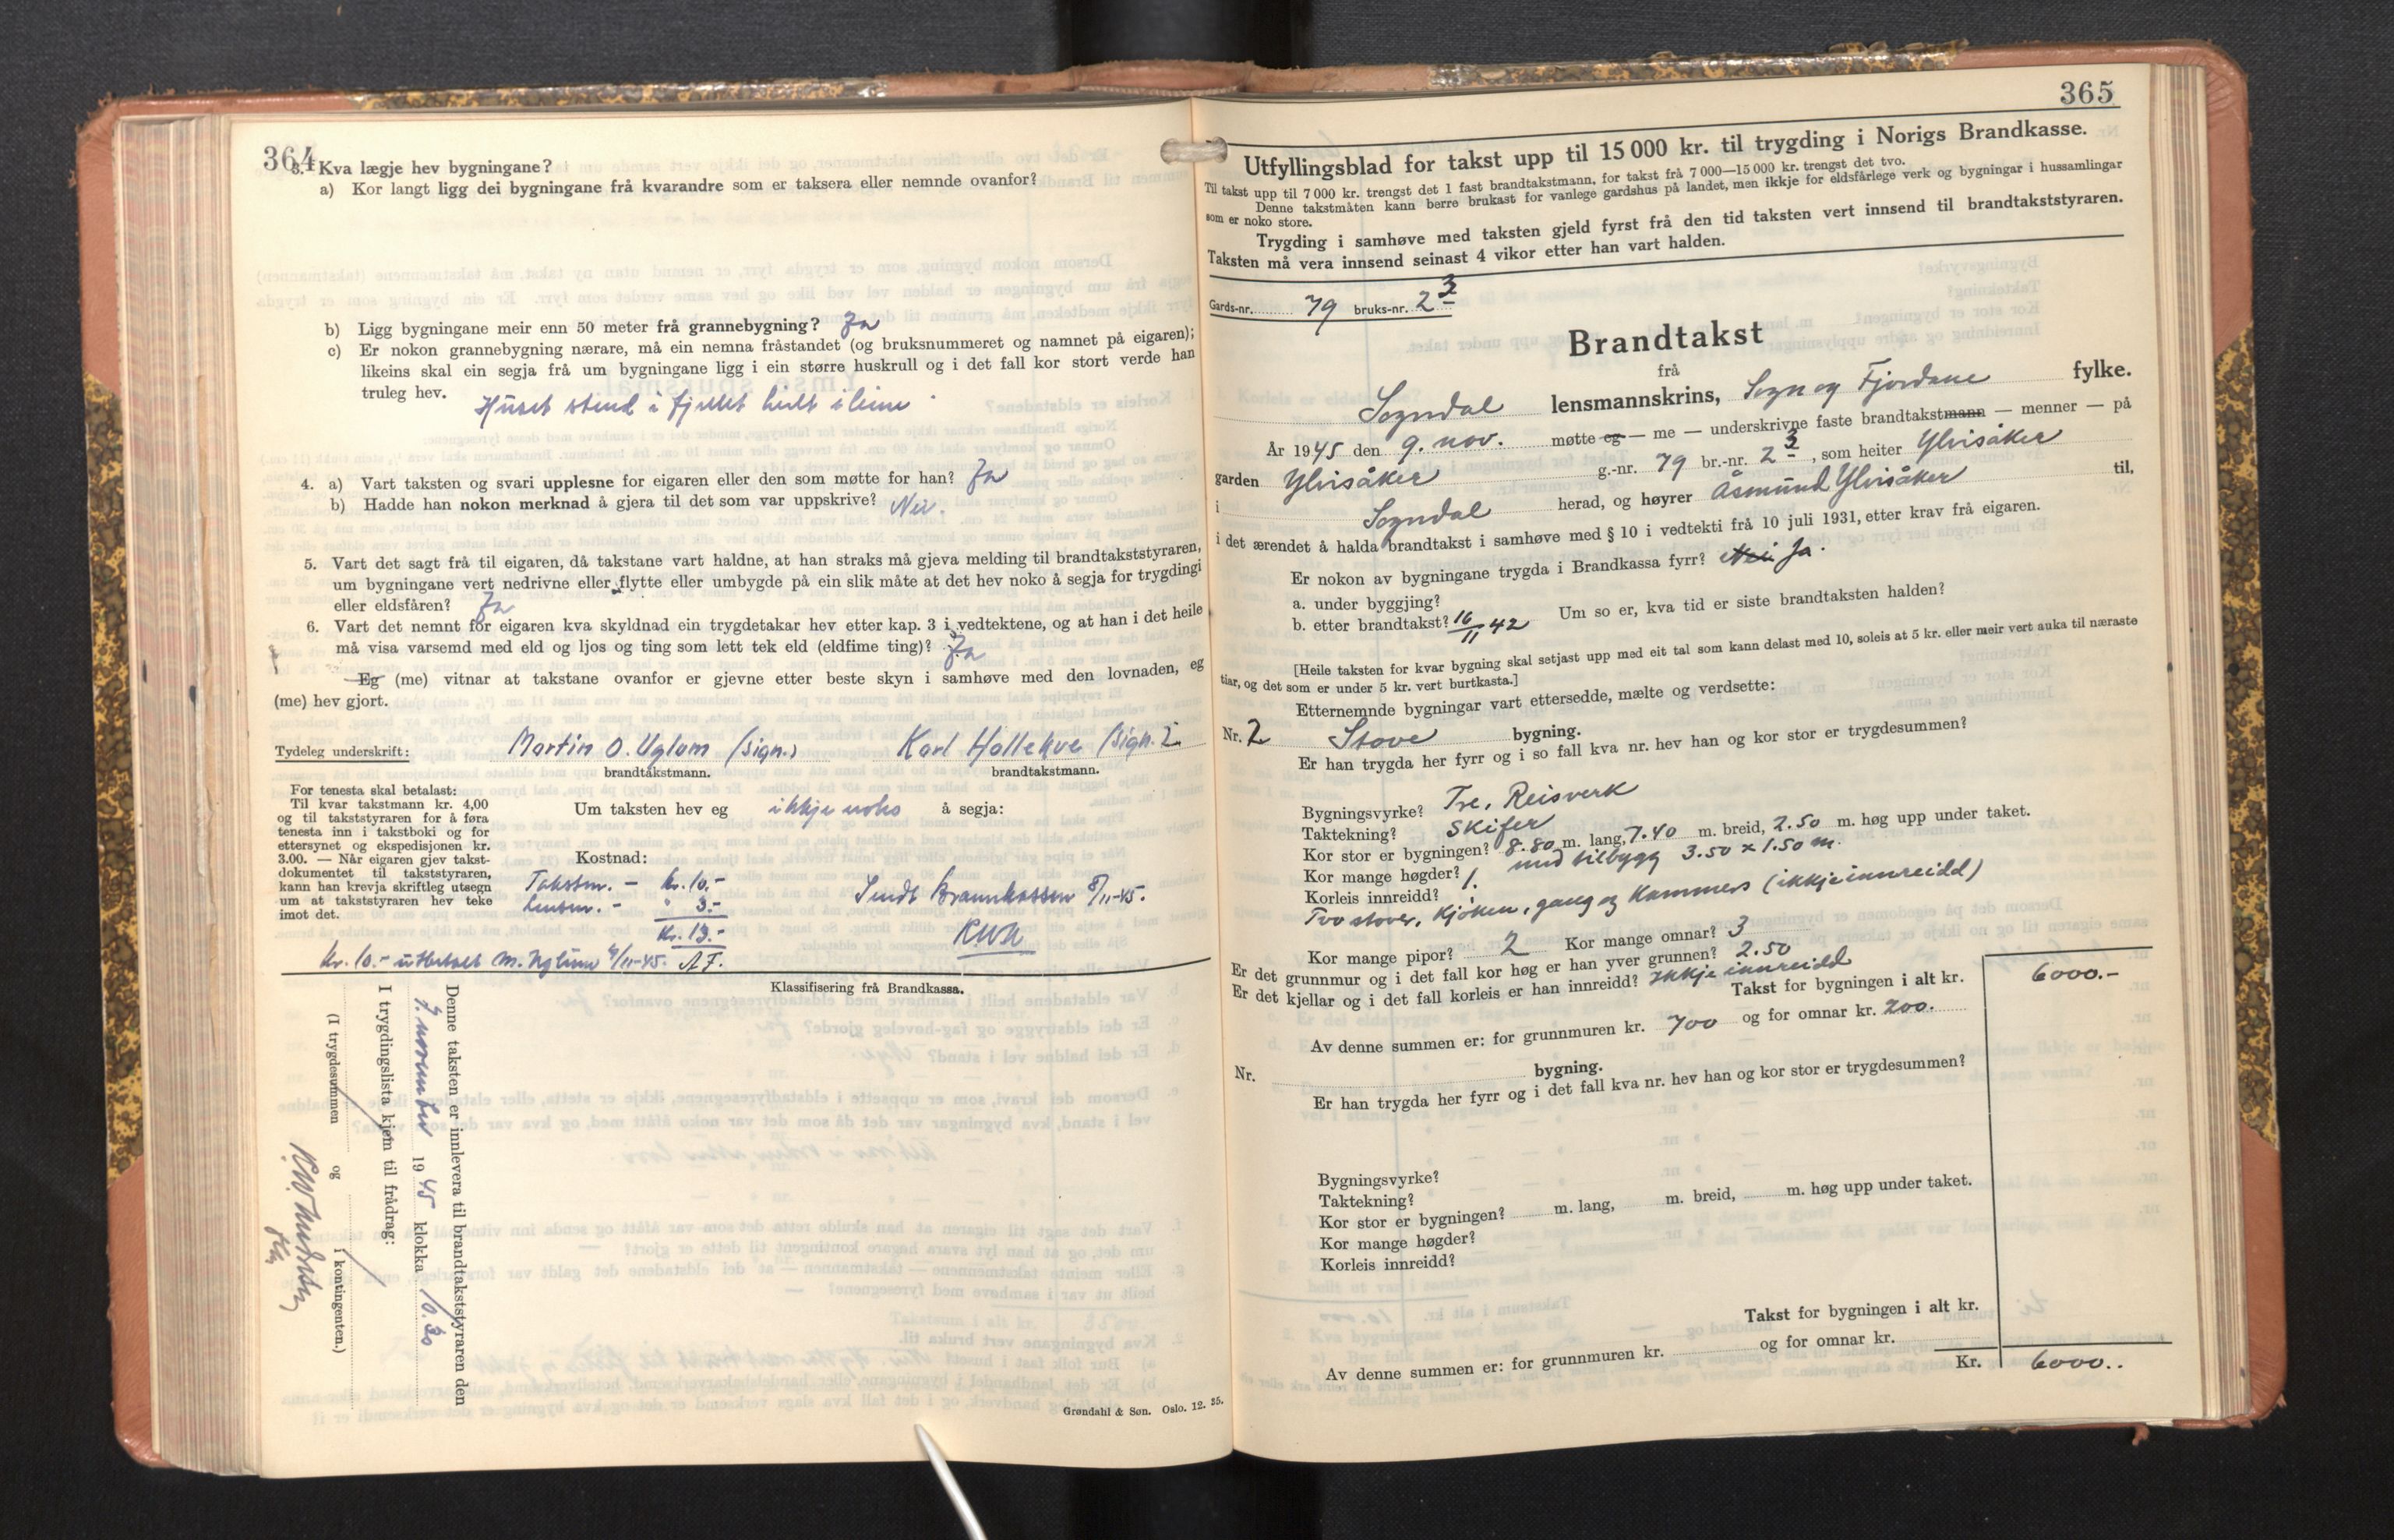 364
3. Kva lægje hev bygningane?
a) Kor langt ligg dei bygningane frå kvarandre som er taksera eller nemnde ovanfor?
b) Ligg bygningane meir enn 50 meter frå grannebygning? Ja
c) Er nokon grannebygning nærare, må ein nemna fråstandet (og bruksnummeret og namnet på eigaren);
likeins skal ein segja frå um bygningane ligg i ein større huskrull og i det fall kor stort verde han
truleg hev.
Huset stend i fjellet heilt i leine
4. a) Vart taksten og svari upplesne for eigaren eller den som møtte for han? Ja
b) Hadde han nokon merknad å gjera til det som var uppskrive? Nei.
5. Vart det sagt frå til eigaren, då takstane vart haldne, at han straks må gjeva melding til brandtakststyraren,
um bygningane vert nedrivne eller flytte eller umbygde på ein slik måte at det hev noko å segja for trygdingi
eller eldsfåren? Ja
6. Vart det nemnt for eigaren kva skyldnad ein trygdetakar hev etter kap. 3 i vedtektene, og at han i det heile
må visa varsemd med eld og ljos og ting som lett tek eld (eldfime ting)? Ja
Eg (me) vitnar at takstane ovanfor er gjevne etter beste skyn i samhøve med den lovnaden, eg
(me) hev gjort.
Tydeleg underskrift: Martin O. Uglum (sign.) Karl Hollekve (sign.)
brandtakstmann. brandtakstmann.
For tenesta skal betalast:
Til kvar takstmann kr. 4,00
og til takststyraren for å føra
tenesta inn i takstboki og for
ettersynet og ekspedisjonen kr.
3.00. — Når eigaren gjev takst-
dokumentet til takststyraren,
kann han krevja skriftleg utsegn
um at takststyraren hev teke
imot det.
Um taksten hev eg ikkje noko å segja:
Kostnad:
Takstm. - kr. 10.-
lensm. - " 3.-
Kr. 13.-
Sendt Brannkassen 8/11-45.
kr. 10.- utbetalt M. Uglum 9/11-45. A F.
Klassifisering frå Brandkassa.
Denne taksten er innlevera til brandtakststyraren den
7. november 1945 klokka 10.30
I trygdingslista kjem til frådrag:
(I trygdesummen og i kontingenten.)
Grøndahl & Søn. Oslo. 12. 35.
365
Utfyllingsblad for takst upp til 15 000 kr. til trygding i Norigs Brandkasse.
Til takst upp til 7 000 kr. trengst det 1 fast brandtakstmann, for takst frå 7 000—15 000 kr. trengst det tvo.
Denne takstmåten kann berre brukast for vanlege gardshus på landet, men ikkje for eldsfårlege verk og bygningar i hussamlingar
som er noko store.
Trygding i samhøve med taksten gjeld fyrst frå den tid taksten vert innsend til brandtakststyraren.
Taksten må vera innsend seinast 4 vikor etter han vart halden.
Gards-nr. 79 bruks-nr. 2 3
Brandtakst
frå
Sogndal lensmannskrins, Sogn og Fjordane fylke.
År 1945 den 9. nov. møtte eg — me — underskrivne faste brandtakstmann — menner — på
garden Ylvisåker g.-nr. 79 br.-nr. 2 3, som heiter Ylvisåker
i Sogndal herad, og høyrer Åsmund Ylvisåker til,
i det ærendet å halda brandtakst i samhøve med § 10 i vedtekti frå 10 juli 1931, etter krav frå eigaren.
Er nokon av bygningane trygda i Brandkassa fyrr? Nei Ja.
a. under byggjing?
b. etter brandtakst? 16/11 42 Um so er, kva tid er siste brandtaksten halden?
[Heile taksten for kvar bygning skal setjast upp med eit tal som kann delast med 10, soleis at 5 kr. eller meir vert auka til næraste
tiar, og det som er under 5 kr. vert burtkasta.]
Etternemnde bygningar vart ettersedde, mælte og verdsette:
Nr. 2 Stove bygning.
Er han trygda her fyrr og i so fall kva nr. hev han og kor stor er trygdesummen?
Bygningsvyrke? Tre, Reisverk
Taktekning? Skifer
Kor stor er bygningen? 8.80 m. lang, 7.40 m. breid, 2.50 m. høg upp under taket.
Kor mange høgder? 1. med tilbygg 3.50 x 1.50 m.
Korleis innreidd?
Tvo stover, kjøken, gang og kammers (ikkje innreidd)
Kor mange pipor? 2 Kor mange omnar? 3
Er det grunnmur og i det fall kor høg er han yver grunnen? 2.50
Er det kjellar og i det fall korleis er han innreidd? Ikkje innreidd
Takst for bygningen i alt kr. 6000.-
Av denne summen er: for grunnmuren kr. 700 og for omnar kr. 200.
Nr. bygning.
Er han trygda her fyrr og i det fall kva nr. hev han og kor stor er trygdesummen?
Bygningsvyrke?
Taktekning?
Kor stor er bygningen? m. lang, m. breid, m. høg upp under taket.
Kor mange høgder?
Korleis innreidd?
Takst for bygningen i alt kr.
Av denne summen er: for grunnmuren kr. og for omnar kr.
Kr. 6000..